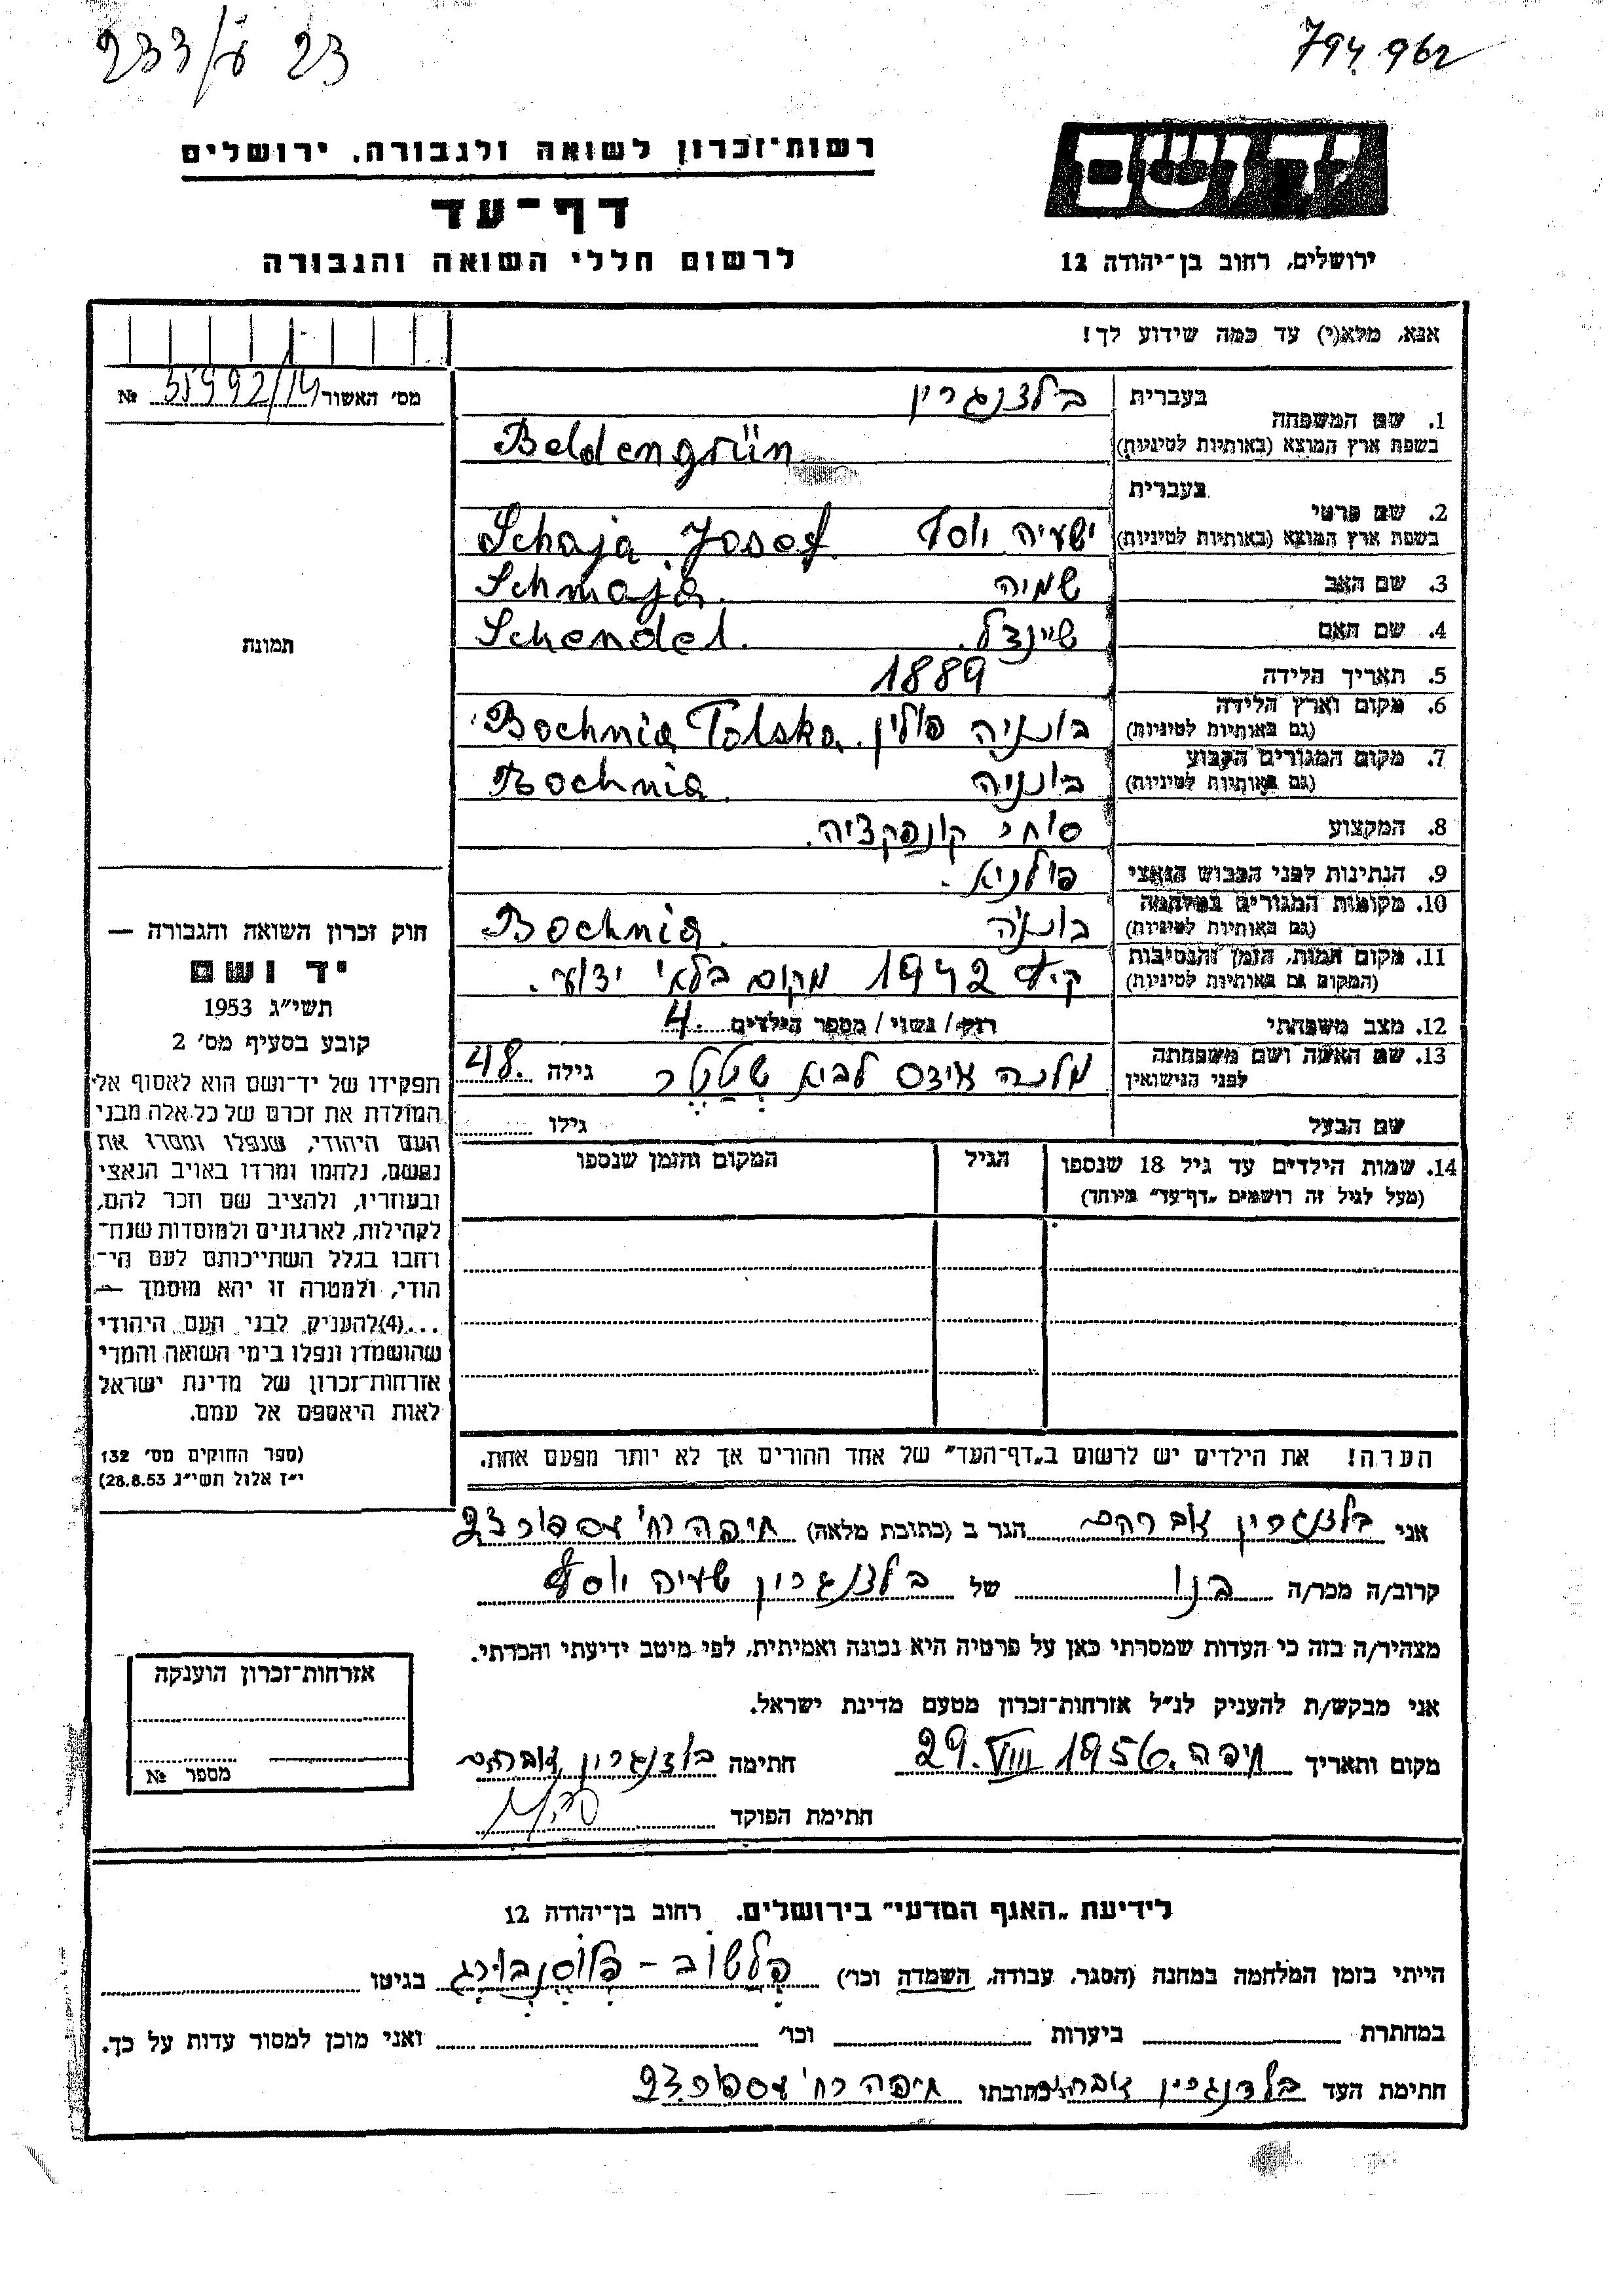 233/ 23
794.962
יד ושם
רשות־זכרון לשואה ולגבורה. ירושלים
דף־עד
לרשום חללי השואה והגבורה
ירושלים, רחוב בן־יהודה 12
אנא, מלא(י) עד כמה שידוע לך!
מס׳ האשור 35992/14 №
תמונה
1. שם המשפחה
בעברית בלדנגרין
בשפת ארץ המוצא (באותיות לטיניות) Beldengrün
2. שם פרטי
בעברית
בשפת ארץ המוצא (באותיות לטיניות) ישעיה יוסף Schaja Josef
3. שם האב שמיה Schmaja
4. שם האם שיינדל. Schendel.
5. תאריך הלידה 1889
6. מקום וארץ הלידה
(גם באותיות לטיניות) בוכניה פולין. Bochnia Polska
7. מקום המגורים הקבוע
(גם באותיות לטיניות) בוכניה Bochnia.
8. המקצוע סוחר קונפקציה.
9. הנתינות לפני הכבוש הנאצי פולנית.
10. מקומות המגורים במלחמה
(גם באותיות לטיניות) בוכניה Bochnia.
11. מקום המות, הזמן והנסיבות
(המקום גם באותיות לטיניות) קיץ 1942 מקום בלתי ידוע.
12. מצב משפחתי רוק / נשוי / מספר הילדים 4.
13. שם האשה ושם משפחתה
לפני הנישואין מלכה לביא גילה 48.
שם הבעל גילו
14. שמות הילדים עד גיל 18 שנספו הגיל המקום והזמן שנספו
(מעל לגיל זה רושמים „דף־עד״ מיוחד)
הערה! את הילדים יש לרשום ב„דף־העד״ של אחד ההורים אך לא יותר מפעם אחת.
חוק זכרון השואה והגבורה —
יד ושם
תשי״ג 1953
קובע בסעיף מס׳ 2
תפקידו של יד־ושם הוא לאסוף אל
המולדת את זכרם של כל אלה מבני
העם היהודי, שנפלו ומסרו את
נפשם, נלחמו ומרדו באויב הנאצי
ובעוזריו, ולהציב שם וזכר להם,
לקהילות, לארגונים ולמוסדות שנח־
רחבו בגלל השתייכותם לעם הי־
הודי, ולמטרה זו יהא מוסמך —
...(4)להעניק לבני העם היהודי
שהושמדו ונפלו בימי השואה והמרי
אזרחות־זכרון של מדינת ישראל
לאות היאספם אל עמם.
(ספר החוקים מס׳ 132
י״ז אלול תשי״ג 28.8.53)
אני בלדנגרין אברהם הגר ב (כתובת מלאה) חיפה רח׳ 23
קרוב/ה מכר/ה בנו של בלדנגרין שעיה יוסף
מצהיר/ה בזה כי העדות שמסרתי כאן על פרטיה היא נכונה ואמיתית, לפי מיטב ידיעתי והכרתי.
אני מבקש/ת להעניק לנ״ל אזרחות־זכרון מטעם מדינת ישראל.
מקום ותאריך חיפה. 29. VIII 1956 חתימה בלדנגרין אברהם
חתימת הפוקד
אזרחות־זכרון הוענקה
מספר №
לידיעת „האגף המדעי״ בירושלים. רחוב בן־יהודה 12
הייתי בזמן המלחמה במחנה (הסגר, עבודה, השמדה וכו׳) פלשוב - פלוסנבורג בגיטו
במחתרת ביערות וכו׳ ואני מוכן למסור עדות על כך.
חתימת העד בלדנגרין אברהם כתובתו חיפה רח׳ 23